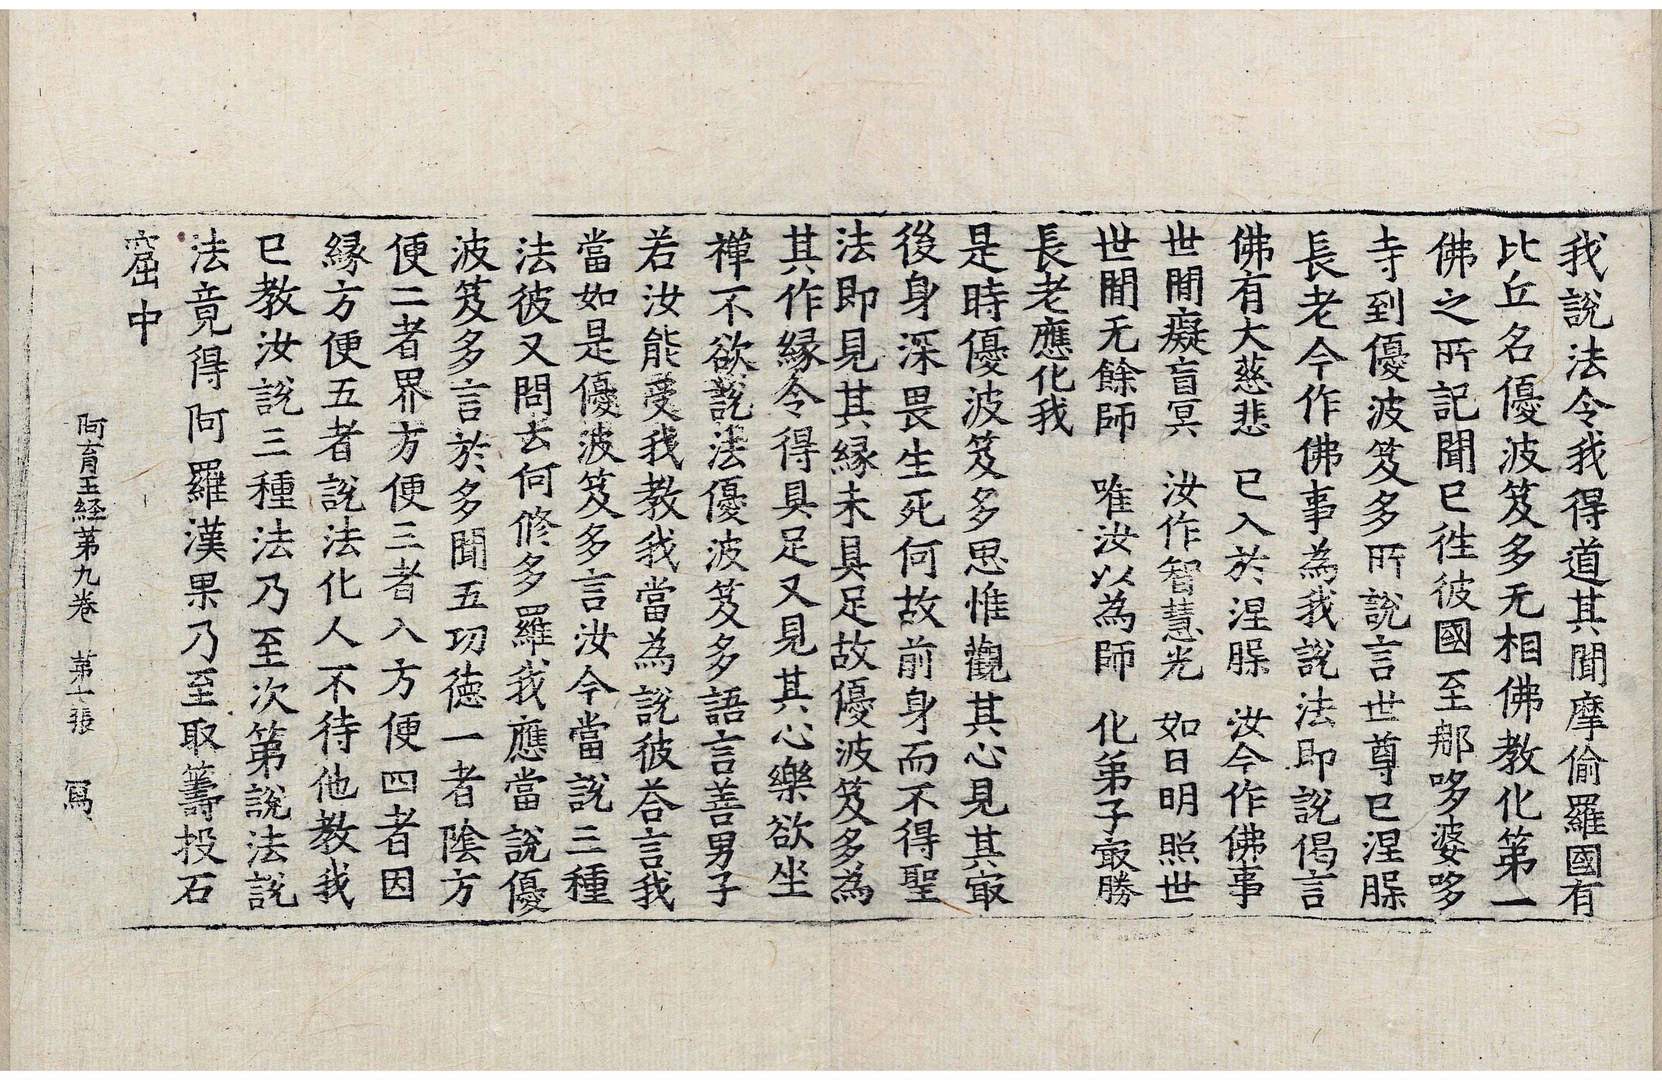 我說法令我得道其聞摩偷羅國有
比丘名優波笈多无相佛教化第一
佛之所記聞已往彼國至那哆婆哆
寺到優波笈多所說言世尊已涅槃
長老今作佛事為我說法即說偈言
佛有大慈悲　已入於涅槃　汝今作佛事
世間癡盲冥　汝作智慧光　如日明照世
世間无餘師　唯汝以為師　化弟子㝡勝
長老應化我
是時優波笈多思惟觀其心見其㝡
後身深畏生死何故前身而不得聖
法即見其緣未具足故優波笈多為
其作緣令得具足又見其心樂欲坐
禪不欲說法優波笈多語言善男子
若汝能受我教我當為說彼荅言我
當如是優波笈多言汝今當說三種
法彼又問云何修多羅我應當說優
波笈多言於多聞五功德一者陰方
便二者界方便三者入方便四者因
緣方便五者說法化人不待他教我
已教汝說三種法乃至次第說法說
法竟得阿羅漢果乃至取籌投石
窟中
阿育王経第九卷　第十張　寫